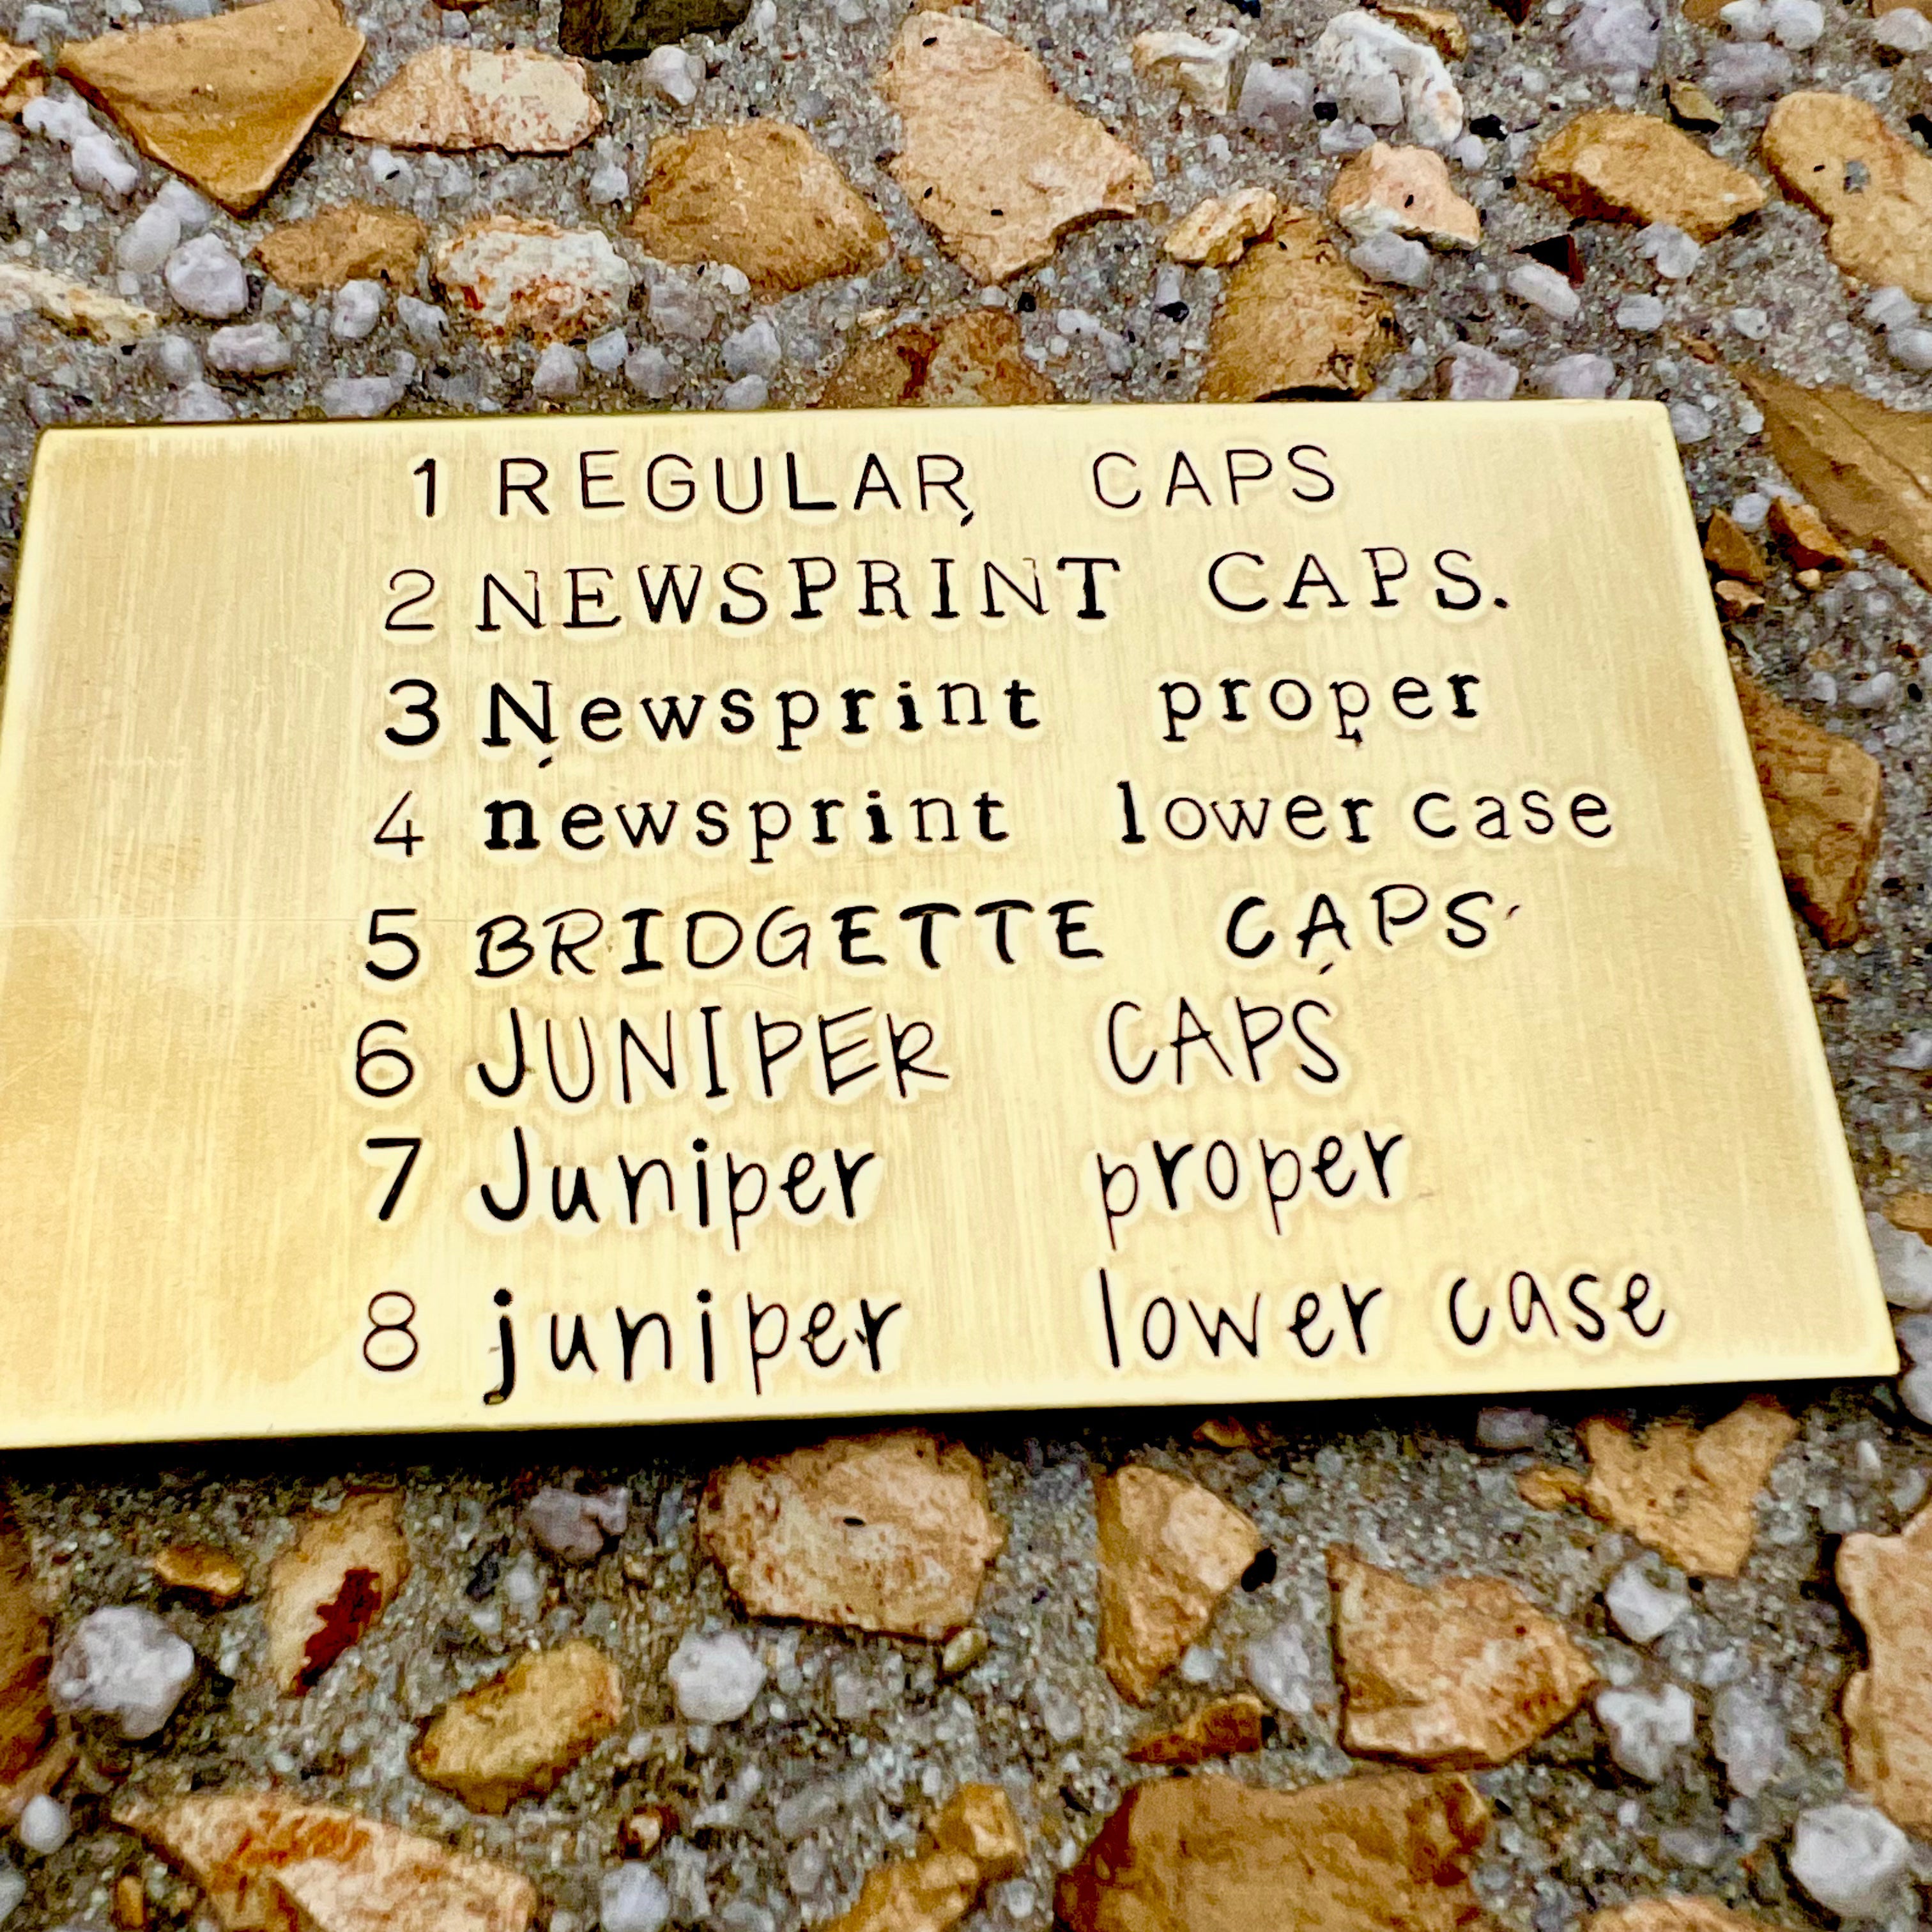 1 REGULAR CAPS
2 NEWSPRINT CAPS.
3 Newsprint proper
4 newsprint lower case
5 BRIDGETTE CAPS
6 JUNIPER CAPS
7 Juniper proper
8 juniper lower case